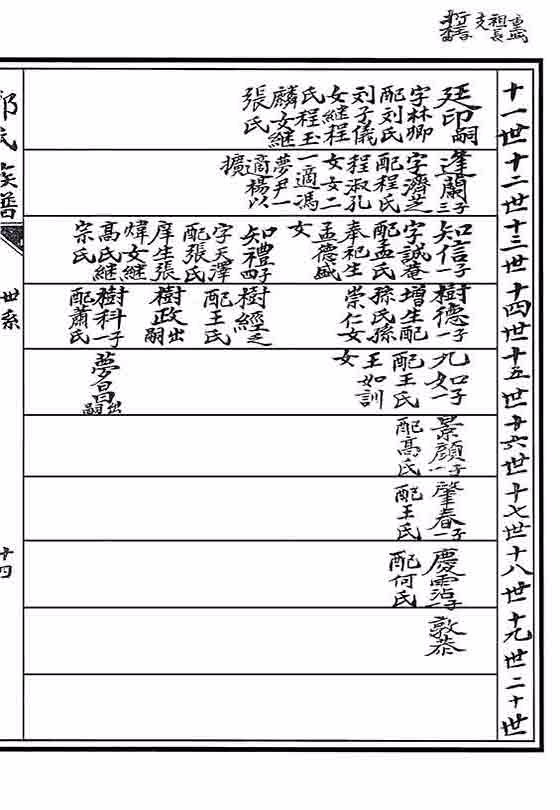 祖長
支
十一世
廷印嗣
字林卿
配刘氏
刘子儀
女継程
氏程玉
麟女継
張氏
十二世
逢蘭三子
字濟芝
配程氏
程淑孔
女女二
一適馮
夢尹一
適楊以
擴
十三世
知信一子
字誠菴
配孟氏
奉祀生
孟德盛
女
知禮四子
字天澤
配張氏
庠生張
煒女継
高氏継
宗氏
十四世
樹德一子
增生配
孫氏孫
崇仁女
樹經乏
配王氏
樹政出嗣
樹科一子
配蕭氏
十五世
九如一子
配王氏
王如訓
女
夢昌出嗣
十六世
景顔一子
配高氏
十七世
肇春一子
配王氏
十八世
慶霑一子
配何氏
十九世
敦恭
二十世
氏族譜
世系
十四